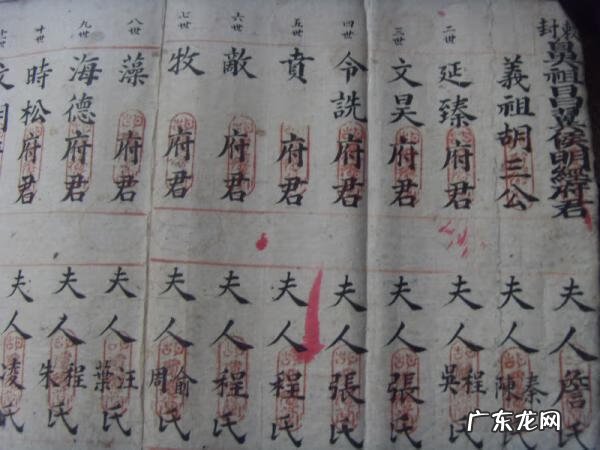 敕封始祖昌翼侯明經府君
義祖胡三公
二世
延臻府君
三世
文昊府君
四世
令詵府君
五世
賁府君
六世
敵府君
七世
牧府君
八世
藻府君
九世
海德府君
十世
時松府君
夫人詹氏
夫人秦陳氏
夫人程吳氏
夫人張氏
夫人張氏
夫人程氏
夫人程氏
夫人俞周氏
夫人汪葉氏
夫人程朱氏
夫人凌氏
广东龙网